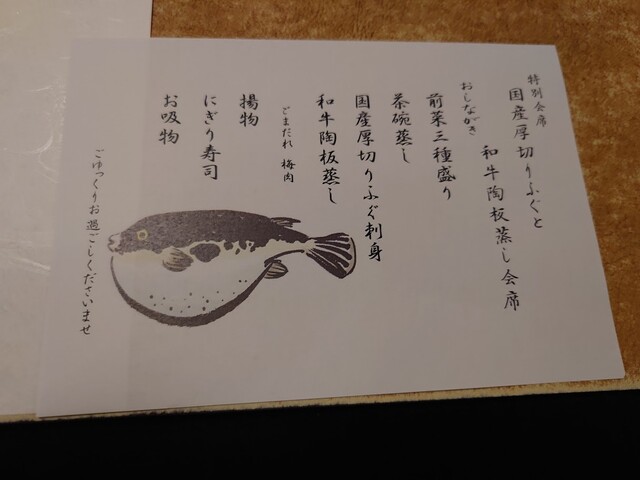 特別会席
国産厚切りふぐと
和牛陶板蒸し会席
おしながき
前菜三種盛り
茶碗蒸し
国産厚切りふぐ刺身
和牛陶板蒸し
ごまだれ 梅肉
揚物
にぎり寿司
お吸物
ごゆっくりお過ごしくださいませ